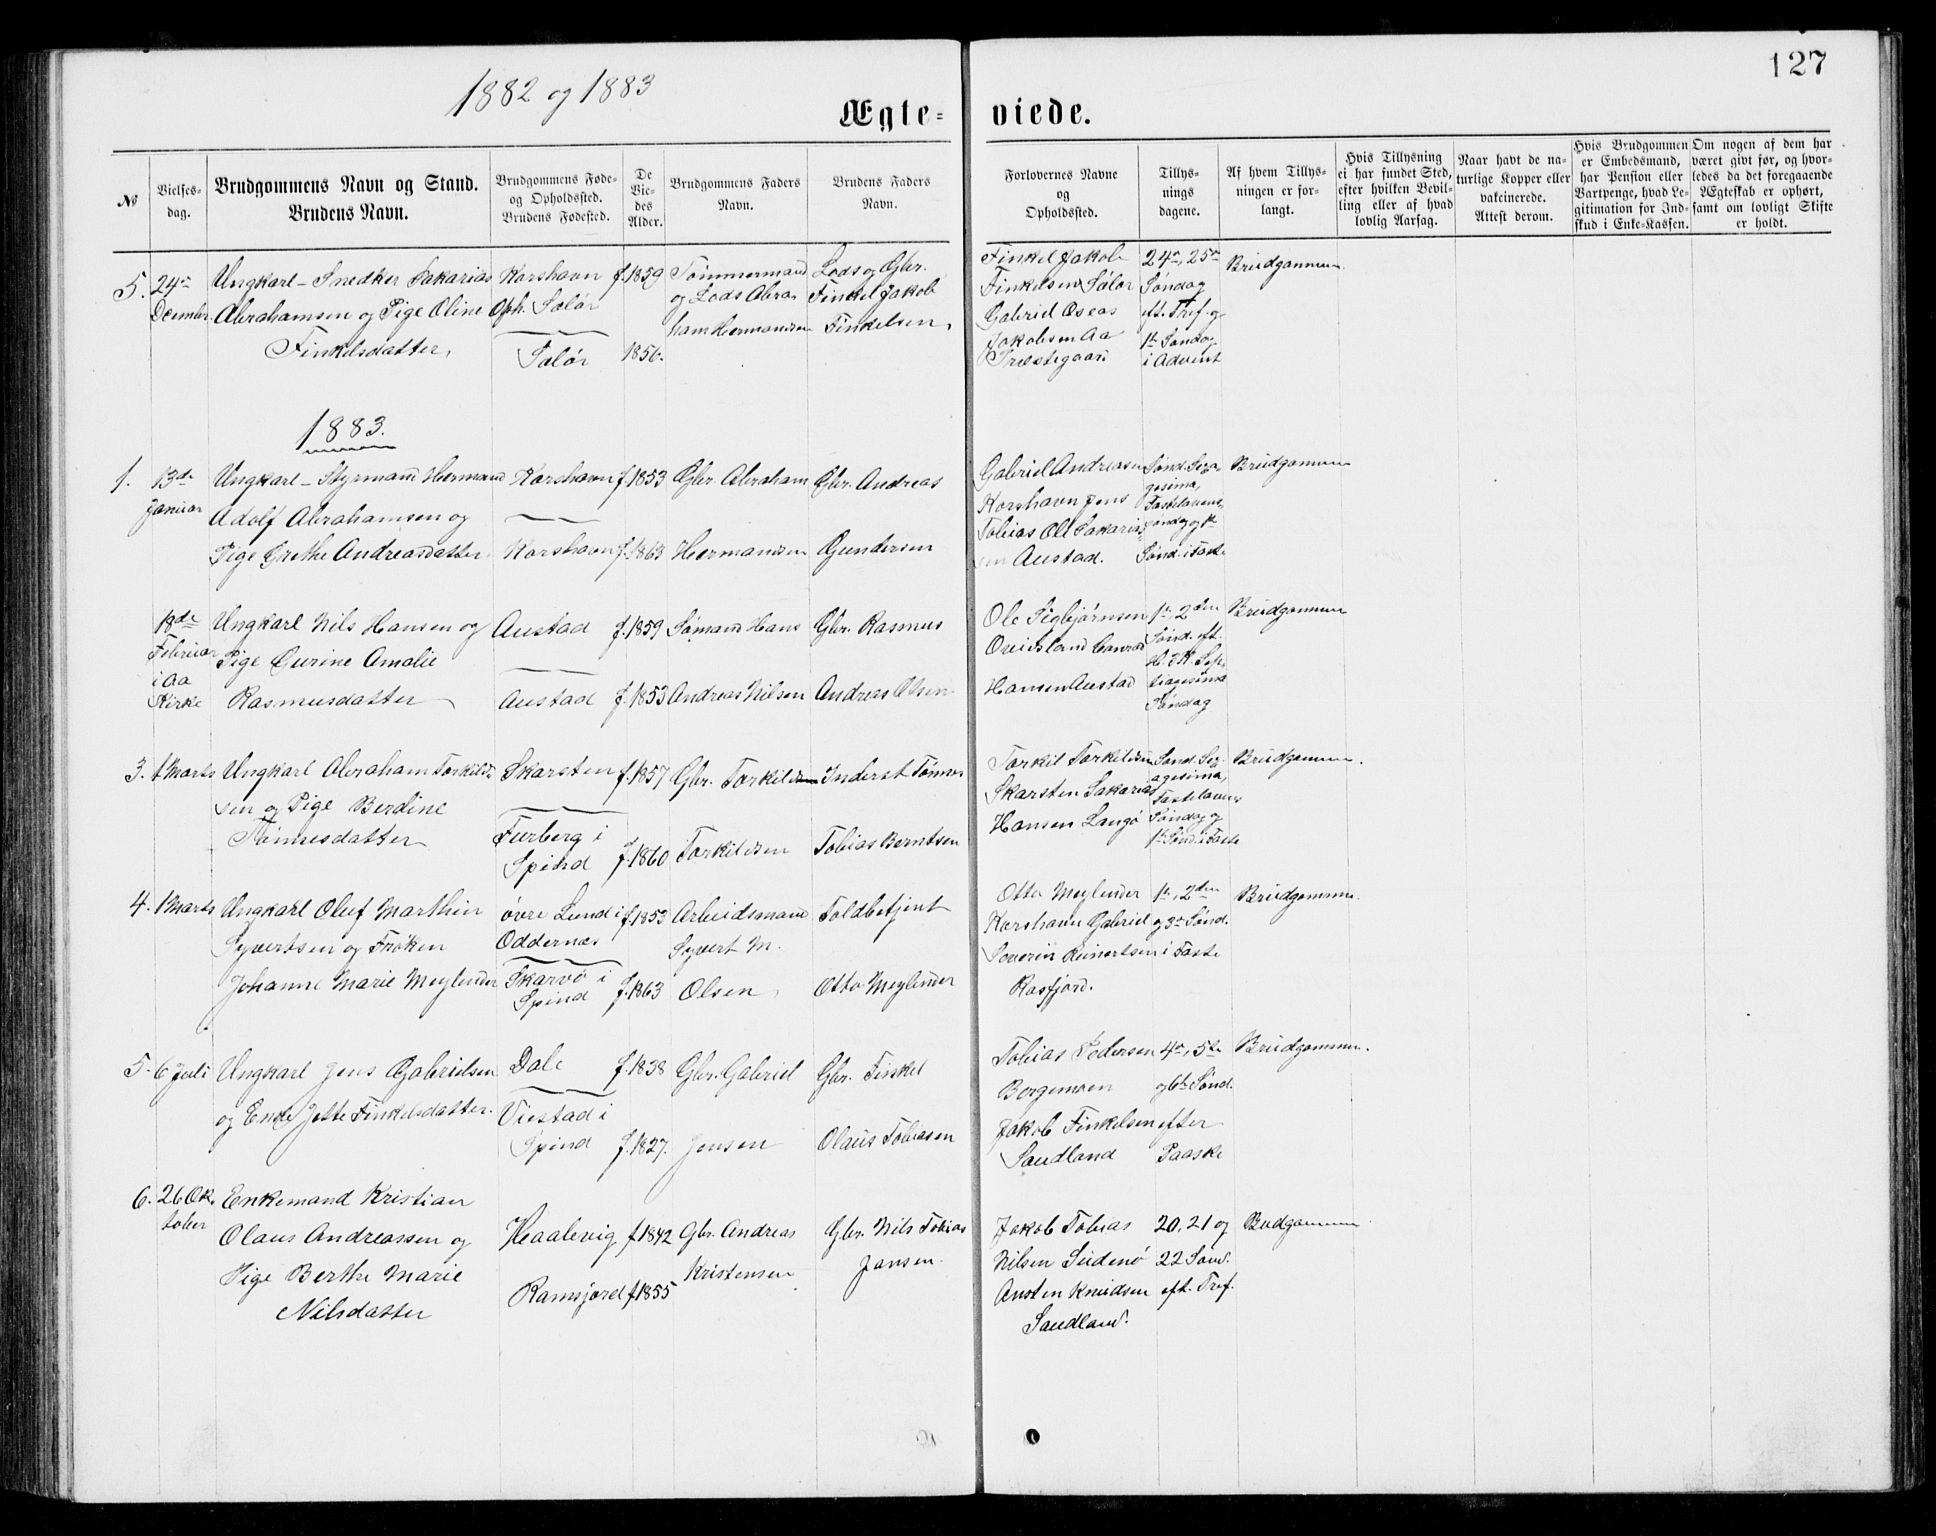 127
1882 og 1883
Ægte-viede.
№
Vielses-
dag.
Brudgommens Navn og Stand.
Brudens Navn.
Brudgommens Føde-
og Opholdssted.
Brudens Fødested.
De
Vie-
des
Alder.
Brudgommens Faders
Navn.
Brudens Faders
Navn.
Forlovernes Navne
og
Opholdssted.
Tillys-
nings
dagene.
Af hvem Tillys-
ningen er for-
langt.
Hvis Tillysning
ei har fundet Sted,
efter hvilken Bevil-
ling eller af hvad
lovlig Aarsag.
Naar havt de na-
turlige Kopper eller
vakcinerede.
Attest derom.
Hvis Brudgommen
er Embedsmand,
har Pension eller
Vartpenge, hvad Le-
gitimation for Ind-
skud i Enke-Kassen.
Om nogen af dem har
været givt før, og hvor-
ledes da det foregaaende
Ægteskab er ophørt,
samt om lovligt Skifte
er holdt.
5.
24de
December
Ungkarl - Snedker Sakarias
Abrahamsen og Pige Oline
Finkelsdatter,
Korshavn
Oph. Salør
Salør
f. 1859
1856.
Tømmermand
og Lods Abra-
ham Hermansen
Lods og Gbr.
Finkel Jakob
Finkelsen,
Finkel Jakob
Finkelsen Salør
Gabriel Oseas
Jakobsen Aa
Præstegaard
24de, 25de
Søndag
eft. Tref. og
1te Søndag
i Advent
Brudgommen.
1883.
1.
13de
Januar
Ungkarl - Styrmand Hermand
Adolf Abrahamsen og
Pige Grethe Andreasdatter
Korshavn
Korshavn
f. 1853
f. 1863
Gbr. Abraham
Hermansen
Gbr. Andreas
Gundersen
Gabriel Andreasen
Korshavn Jens
Tobias Ole Sakarias-
sen Austad.
Sønd. Sexa-
gesima,
Fastelavens-
søndag og 1te
Sønd. i Faste
Brudgommen
18de
Februar
i Aa
Kirke
Ungkarl Nils Hansen og
Pige Gurine Amalie
Rasmusdatter
Austad
Austad
f. 1859
f. 1853
Sømand Hans
Andreas Nilsen
Gbr. Rasmus
Andreas Olsen
Ole Sigbjørnsen
Øveidsland Conrad
Hansen Austad
1te, 2den
Sønd. eft.
H. 3 K. Sep-
tuagesima
Søndag
Brudgommen
3.
1 Marts
Ungkarl Abraham Torkild-
sen og Pige Berdine
Tønnesdatter
Skarsten
Furberg i
Spind
f. 1857
f. 1860
Gbr. Torkildsen
Torkildsen
Inderst Tønnes
Tobias Berntsen
Torkil Torkildsen
Skarsten Sakarias
Hansen Langø
Sønd. Sex-
agesima,
Fastelavens
Søndag og
1te Sønd. i Faste
Brudgommen.
4.
1 Marts
Ungkarl Oluf Marthin
Syvertsen og Frøken
Johanne Marie Meylender
øvre Lund i
Oddernæs
Skarvø i
Spind
f. 1853
f. 1863
Arbeidsmand
Syvert M.
Olsen,
Toldbetjent
Otto Meylender
Otto Meylender
Korshavn Gabriel
Severin Reinertsen
Rosfjord.
1te, 2den
og 3de Sønd.
i Faste
Brudgommen.
5.
6 Juli
Ungkarl Jens Gabrielsen
og Enke Jette Finkelsdatter.
Dale
Viestad i
Spind
f. 1838
f. 1827.
Gbr. Gabriel
Jensen
Gbr. Finkel
Olaus Tobiasen
Tobias Pedersen
Borgemoen
Jakob Finkelsen
Saudland
4de, 5te
og 6te Sønd.
efter
Paaske
Brudgommen.
6.
26 Ok-
tober
Enkemand Kristian
Olaus Andreassen og
Pige Berthe Marie
Nilsdatter
Haalevig
Ramsjord
f. 1842
f. 1855
Gbr. Andreas
Kristensen
Gbr. Nils Tobias
Jansen.
Jakob Tobias
Nilsen Sudenø
Austen Knudsen
Saudland.
20, 21 og
22 Sønd.
eft. Tref.
Budgommen.